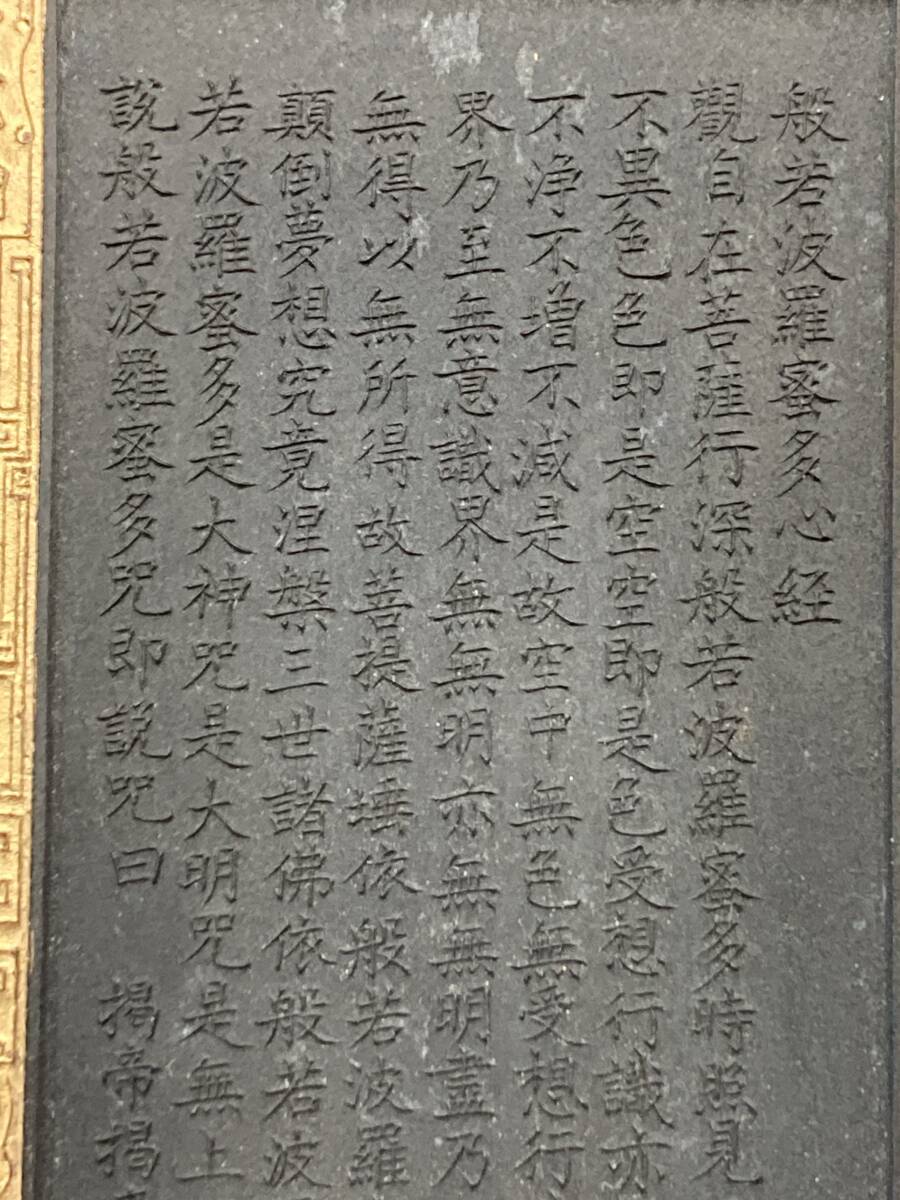 般若波羅蜜多心経
觀自在菩薩行深般若波羅蜜多時照見
不異色色即是空空即是色受想行識亦
不浄不増不減是故空中無色無受想行
界乃至無意識界無無明亦無無明盡乃
無得以無所得故菩提薩埵依般若波羅
顛倒夢想究竟涅槃三世諸佛依般若波
若波羅蜜多是大神咒是大明咒是無上
説般若波羅蜜多咒即説咒曰 揭帝揭